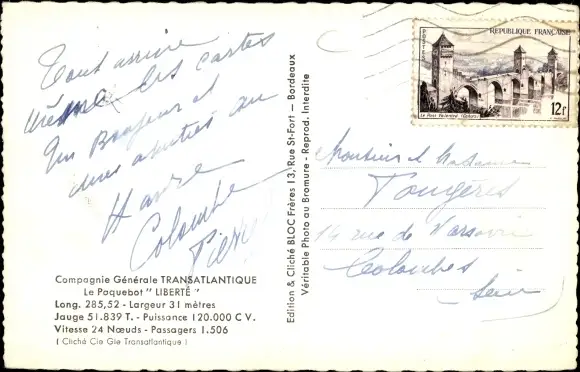 Tout arrive
même les cartes
Un Bonjour et
du
Havre
Colombe
Pierre
Compagnie Générale TRANSATLANTIQUE
Le Paquebot "LIBERTÉ"
Long. 285,52 - Largeur 31 mètres
Jauge 51.839 T. - Puissance 120.000 C V.
Vitesse 24 Nœuds - Passagers 1.506
( Cliché Cie Gle Transatlantique )
Edition & Cliché BLOC Frères 13, Rue St-Fort - Bordeaux
Véritable Photo au Bromure - Reprod. Interdite
POSTES
RÉPUBLIQUE FRANÇAISE
12F
Le Pont Valentré (Cahors)
Monsieur et Madame
Fougères
14 rue de Varsovie
Colombes
Seine